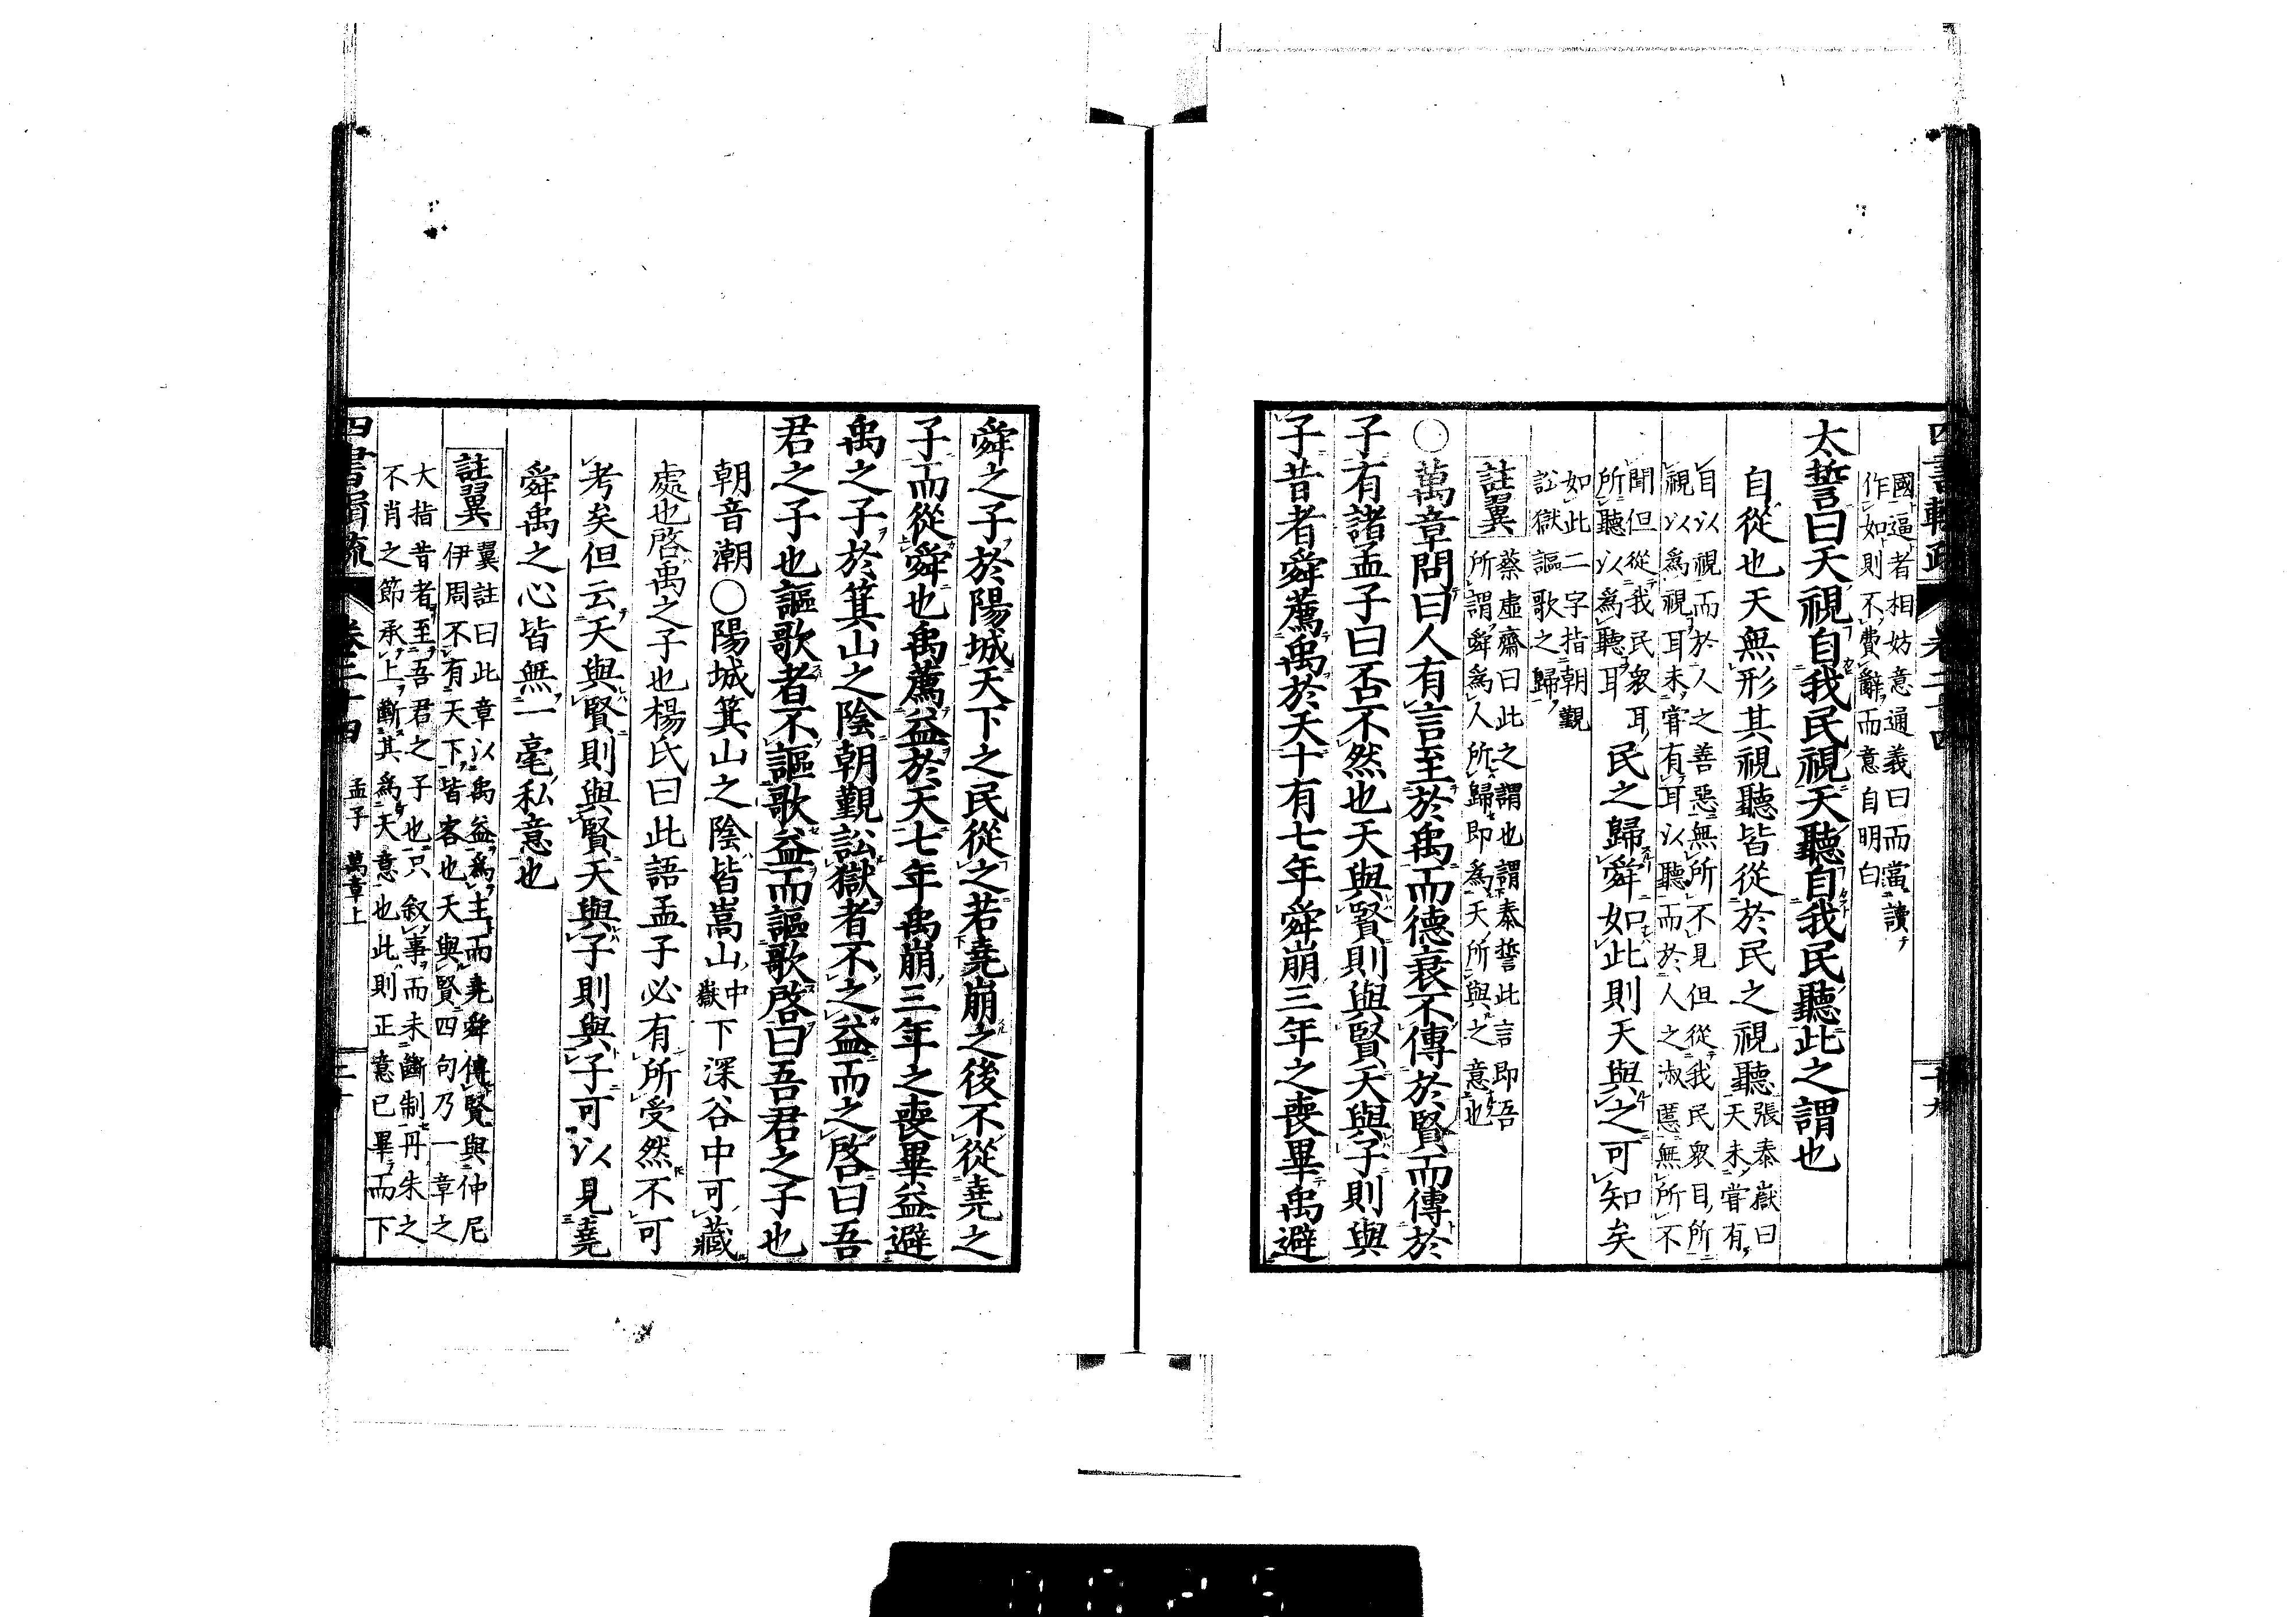 四書輯疏 卷二十四 十九
國逼者相妨意通義曰而當讀
作如則不費辭而意自明白
太誓曰天視自我民視天聽自我民聽此之謂也
自從也天無形其視聽皆從於民之視聽張泰嶽曰
天未甞有
自以視而於人之善惡無所不見但從我民衆目所
視以爲視耳未甞有耳以聽而於人之淑慝無所不
聞但從我民衆耳
所聽以爲聽耳
民之歸舜如此則天與之可知矣
如此二字指朝覲
訟獄謳歌之歸
註翼
蔡虛齋曰此之謂也謂泰誓此言即吾
所謂舜爲人所歸即爲天所與之意也
○萬章問曰人有言至於禹而德衰不傳於賢而傳於
子有諸孟子曰否不然也天與賢則與賢天與子則與
子昔者舜薦禹於天十有七年舜崩三年之喪畢禹避
舜之子於陽城天下之民從之若堯崩之後不從堯之
子而從舜也禹薦益於天七年禹崩三年之喪畢益避
禹之子於箕山之陰朝覲訟獄者不之益而之啓曰吾
君之子也謳歌者不謳歌益而謳歌啓曰吾君之子也
朝音潮○陽城箕山之陰皆嵩山中嶽下深谷中可藏
處也啓禹之子也楊氏曰此語孟子必有所受然不可
考矣但云天與賢則與賢天與子則與子可以見堯
舜禹之心皆無一毫私意也
註翼
翼註曰此章以禹益爲主而堯舜傳賢與仲尼
伊周不有天下皆客也天與賢四句乃一章之
大指昔者至吾君之子也只叙事而未斷制丹朱之
不肖之節承上斷其爲天意也此則正意已畢而下
四書輯疏 卷二十四 孟子 萬章上 二十